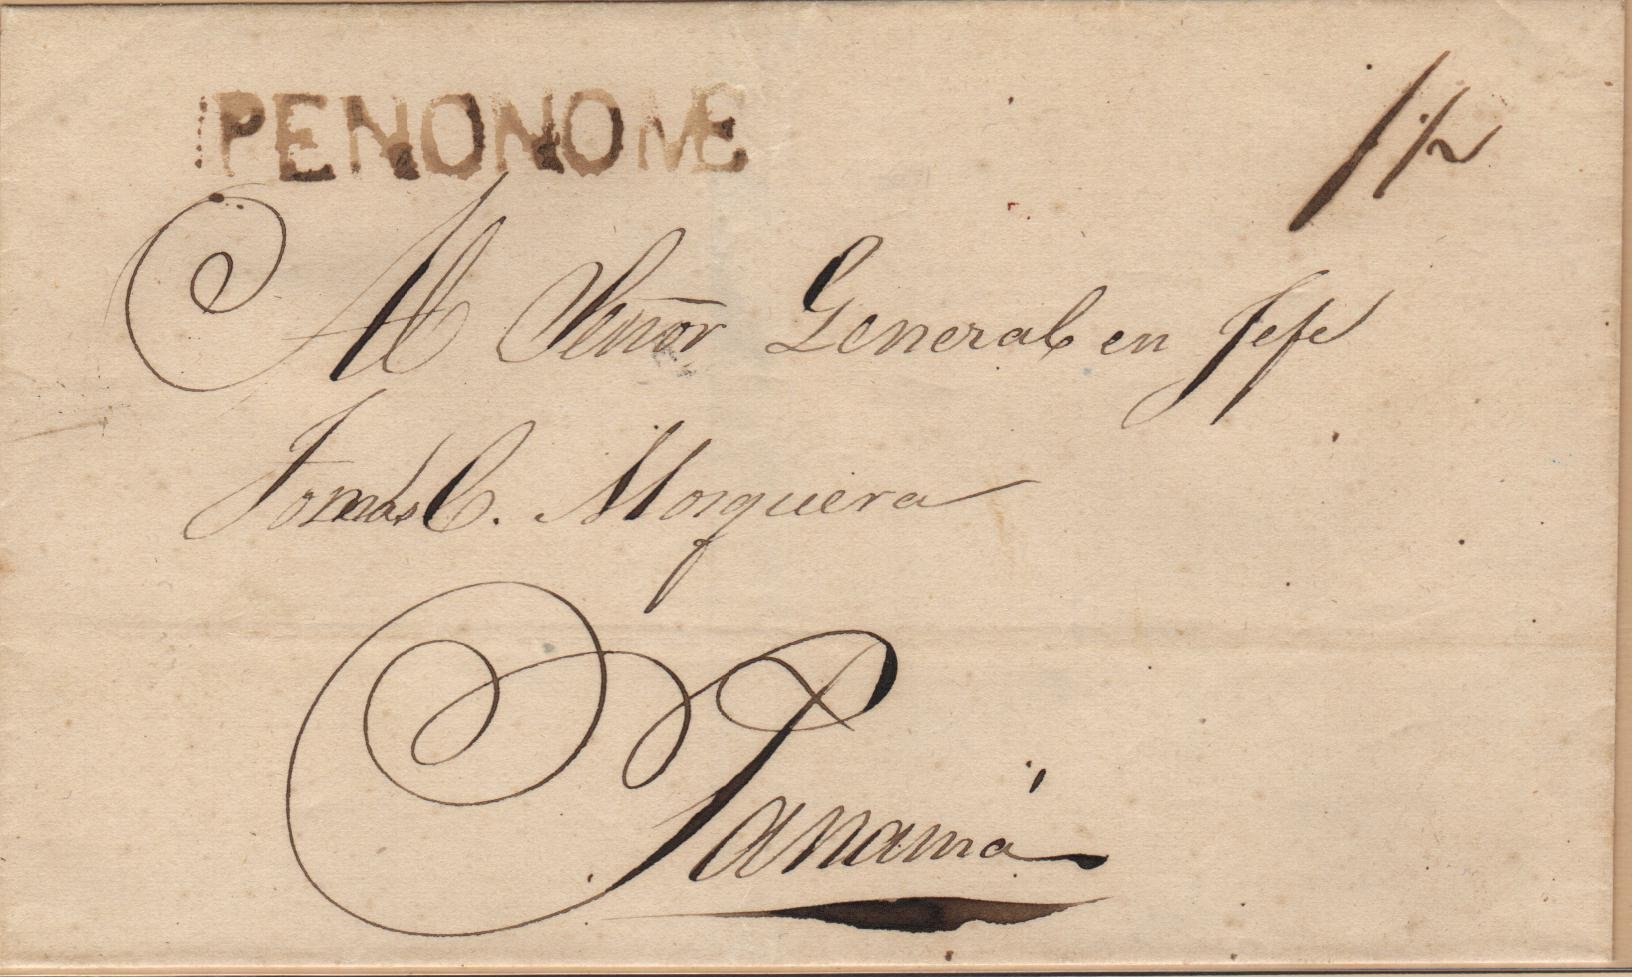 PENONOME
1 1/2
Al Señor General en Jefe
Tomás C. Mosquera
Panamá